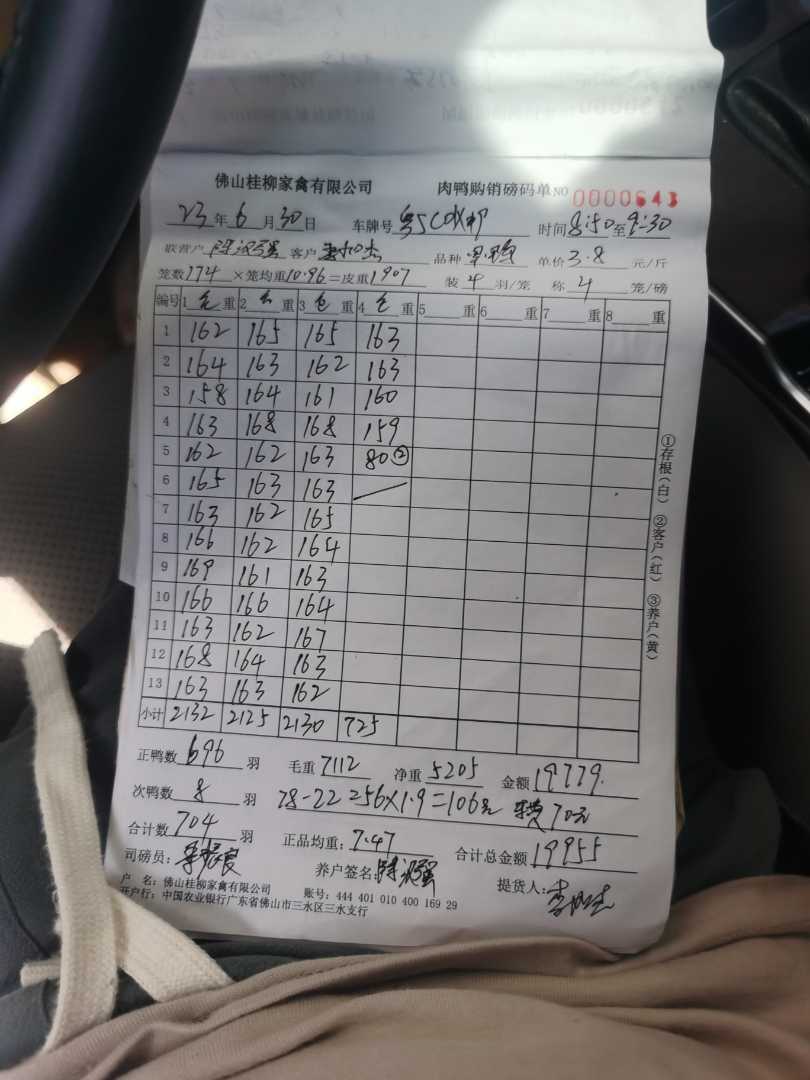 佛山桂柳家禽有限公司 肉鸭购销磅码单 NO 0000643
23年6月30日 车牌号 粤 时间8:50至9:30
联营户 客户 品种 单价3.8元/斤
笼数174×笼均重10.96=皮重1907 装4羽/笼 称4笼/磅
编号 1毛重 2重 3毛重 4毛重 5重 6重 7重 8重
1 162 165 165 163
2 164 163 162 163
3 158 164 161 160
4 163 168 168 159
5 162 162 163 80②
6 165 163 163
7 163 162 165
8 166 162 164
9 169 161 163
10 166 166 164
11 163 162 167
12 168 164 163
13 163 163 162
小计 2132 2125 2130 725
正鸭数696羽 毛重7112 净重5205 金额19779.
次鸭数8羽 78-22=56×1.9=106元 70元
合计数704羽 正品均重:7.47 合计总金额19955
司磅员: 养户签名: 提货人:
户 名:佛山桂柳家禽有限公司 账号:444 401 010 400 169 29
开户行:中国农业银行广东省佛山市三水区三水支行
①存根(白) ②客户(红) ③养户(黄)